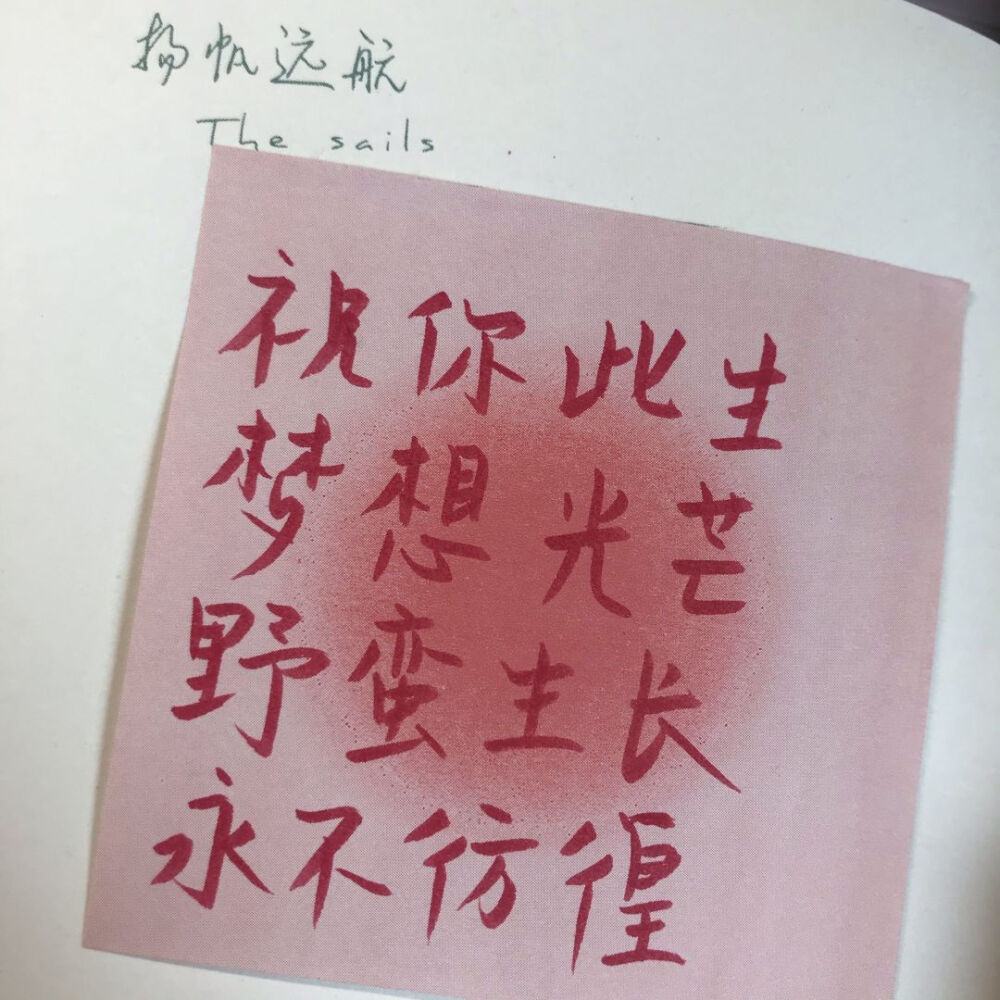 扬帆远航
The sails
祝你此生
梦想光芒
野蛮生长
永不彷徨